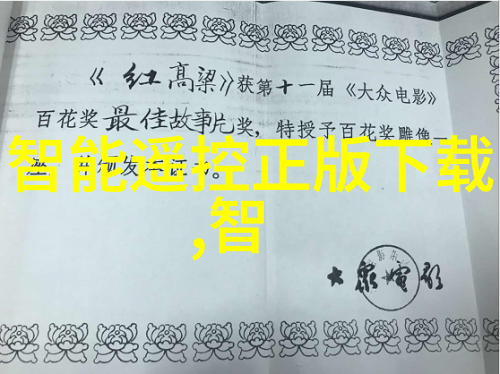 《红高粱》获第十一届《大众电影》
百花奖最佳故事片奖，特授予百花奖雕像一
智能遥控正版下载
,智
大众电影